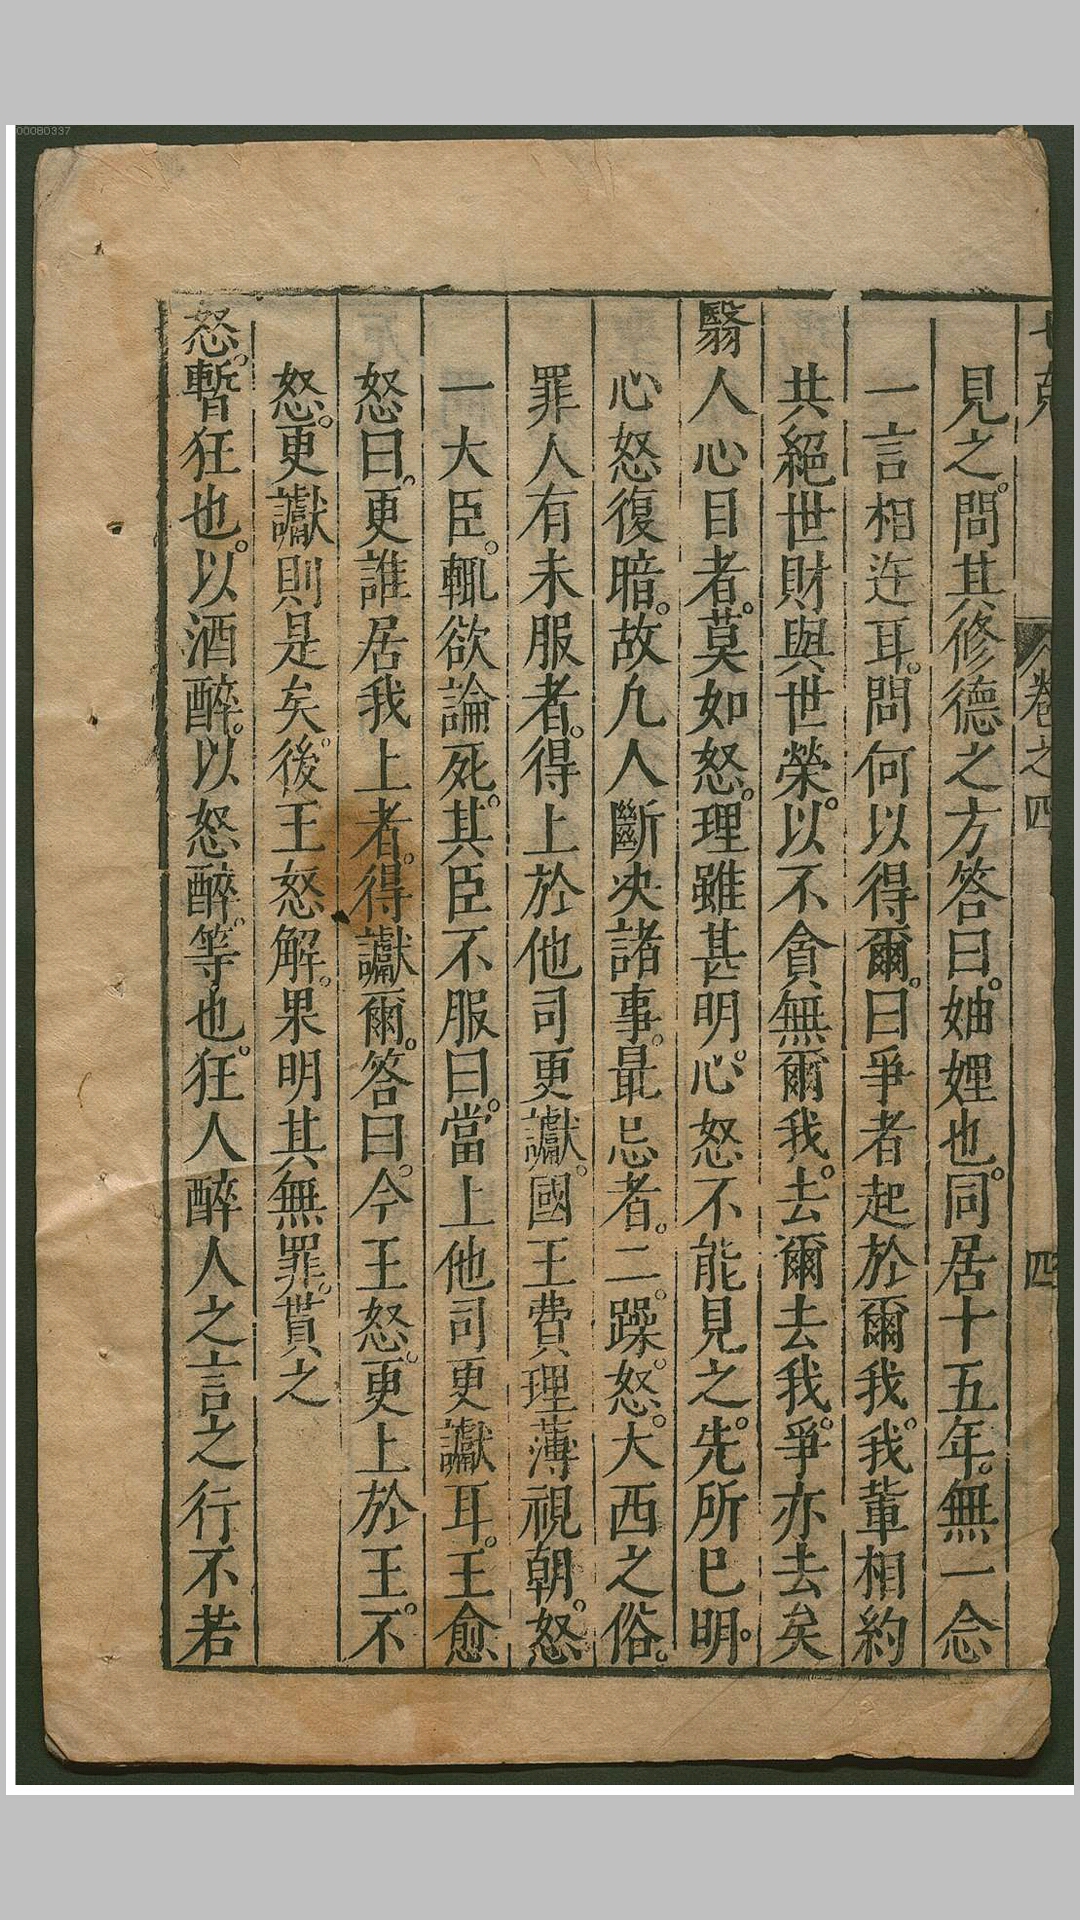 00080337
七克 卷之四 四
見之。問其修德之方答曰。妯娌也。同居十五年。無一念
一言相迕耳。問何以得爾。曰爭者起於爾我。我輩相約
共絕世財與世榮。以不貪無爾我。去爾去我。爭亦去矣
翳人心目者。莫如怒。理雖甚明。心怒不能見之。先所已明。
心怒復暗。故凢人斷决諸事。最忌者。二。躁。怒。大西之俗。
罪人有未服者。得上於他司更讞。國王費理薄視朝。怒。
一大臣。輒欲論死。其臣不服曰。當上他司更讞耳。王愈
怒曰。更誰居我上者。得讞爾。答曰。今王怒。更上於王。不
怒。更讞則是矣。後王怒解。果明其無罪。貰之
怒。暫狂也。以酒醉。以怒醉。等也。狂人醉人之言之行不若